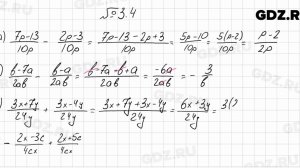 № 3.4
DKZ.OR
) 7p-13/10p - 2p-3/10p = 7p-13-2p+3/10p = 5p-10/10p = 5(p-2)/10p = p-2/2p
) b-7a/2ab - b-a/2ab = b-7a-b+a/2ab = -6a/2ab = -3/b
) 3x+7y/24y + 3x-4y/24y = 3x+7y+3x-4y/24y = 6x+3y/24y = 3(2
- 2x-3c/4cx + 2x+5c/4cx